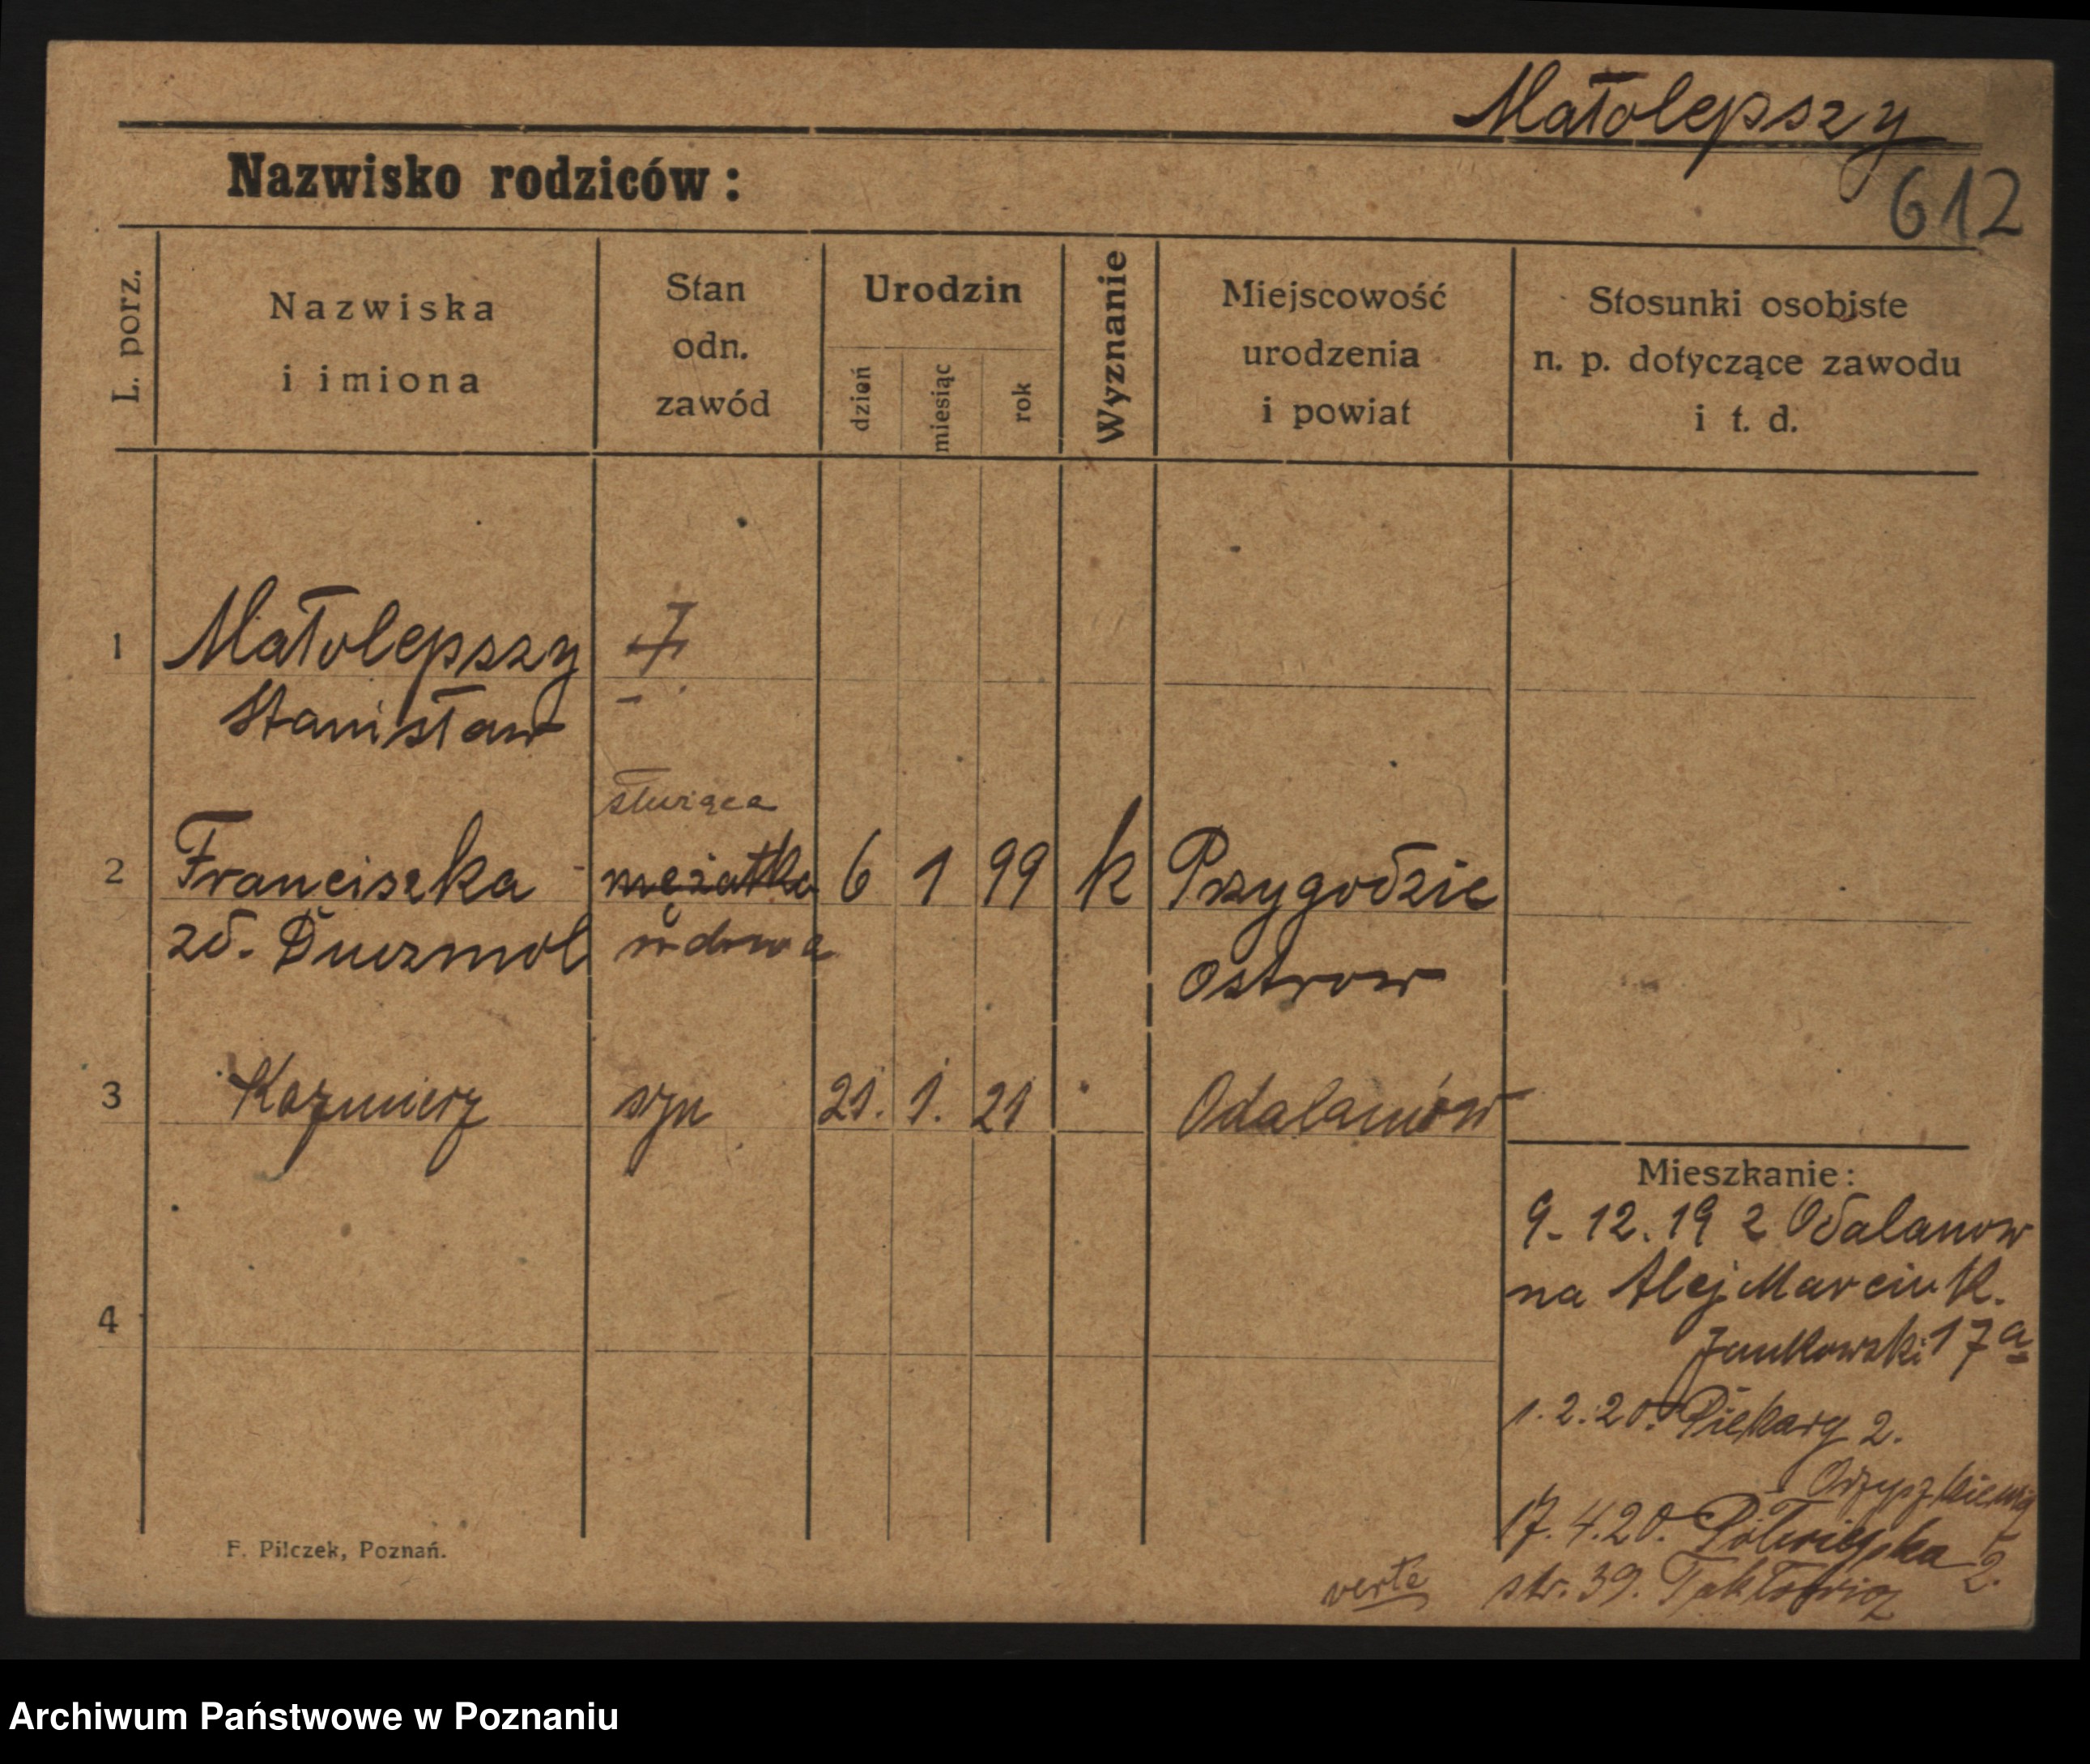 Małolepszy
612
Nazwisko rodziców:
L. porz.
Nazwiska
i imiona
Stan
odn.
zawód
Urodzin
dzień
miesiąc
rok
Wyznanie
Miejscowość
urodzenia
i powiat
Stosunki osobiste
n. p. dotyczące zawodu
i t. d.
1 Małolepszy
Stanisław
służąca
2 Franciszka mężatka 6 1 99 k Przygodzie
zd. wdowa
Ostrow
3 Kazimierz syn 21. 1. 21 Odalanów
Mieszkanie:
9. 12. 19 z Odalanow
na Alej Marcink.
Jankowski 17a
1. 2. 20. Piekary 2.
17. 4. 20. Półwiejska
str. 39.
4
verte
F. Pilczek, Poznań.
Archiwum Państwowe w Poznaniu